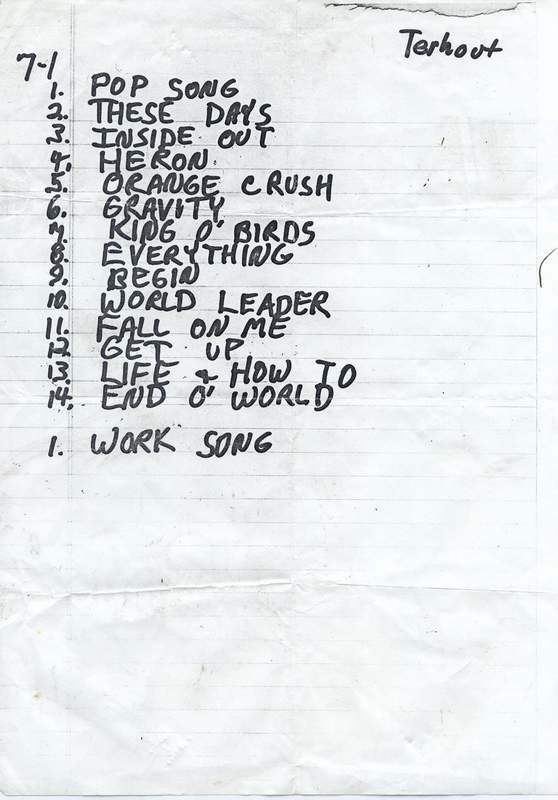 Terhout
7-1
1. POP SONG
2. THESE DAYS
3. INSIDE OUT
4. HERON
5. ORANGE CRUSH
6. GRAVITY
7. KING O' BIRDS
8. EVERYTHING
9. BEGIN
10. WORLD LEADER
11. FALL ON ME
12. GET UP
13. LIFE & HOW TO
14. END O' WORLD
1. WORK SONG